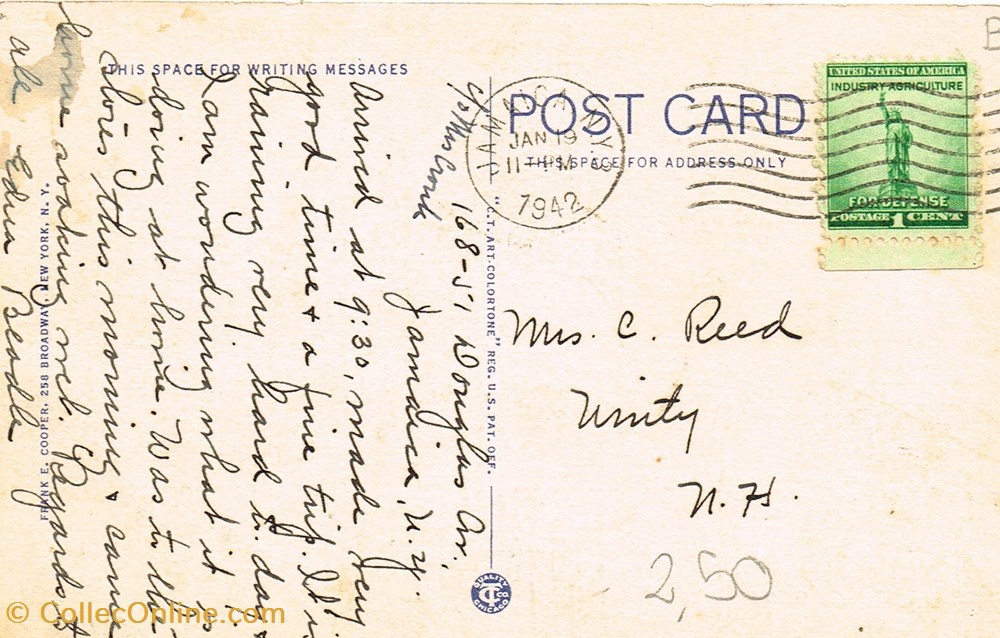 THIS SPACE FOR WRITING MESSAGES
POST CARD
THIS SPACE FOR ADDRESS ONLY
JAMAICA N.Y.
JAN 19
11 PM
1942
UNITED STATES OF AMERICA
INDUSTRY AGRICULTURE
FOR DEFENSE
POSTAGE 1 CENT
B
c/o Mrs
168-51 Douglas Av.
Jamaica, N.Y.
Arrived at 9:30, made very
good time & a fine trip. It is
raining very hard to day &
I am wondering what it is
doing at home. Was to the
stores this morning & came
home soaking wet. Regards to
all Edna Beadle
Mrs. C. Reed
Unity
N.H.
2,50
"C.T. ART-COLORTONE" REG. U.S. PAT. OFF.
FRANK E. COOPER, 258 BROADWAY, NEW YORK, N. Y.
QUALITY
CT CO
CHICAGO
© CollecOnline.com